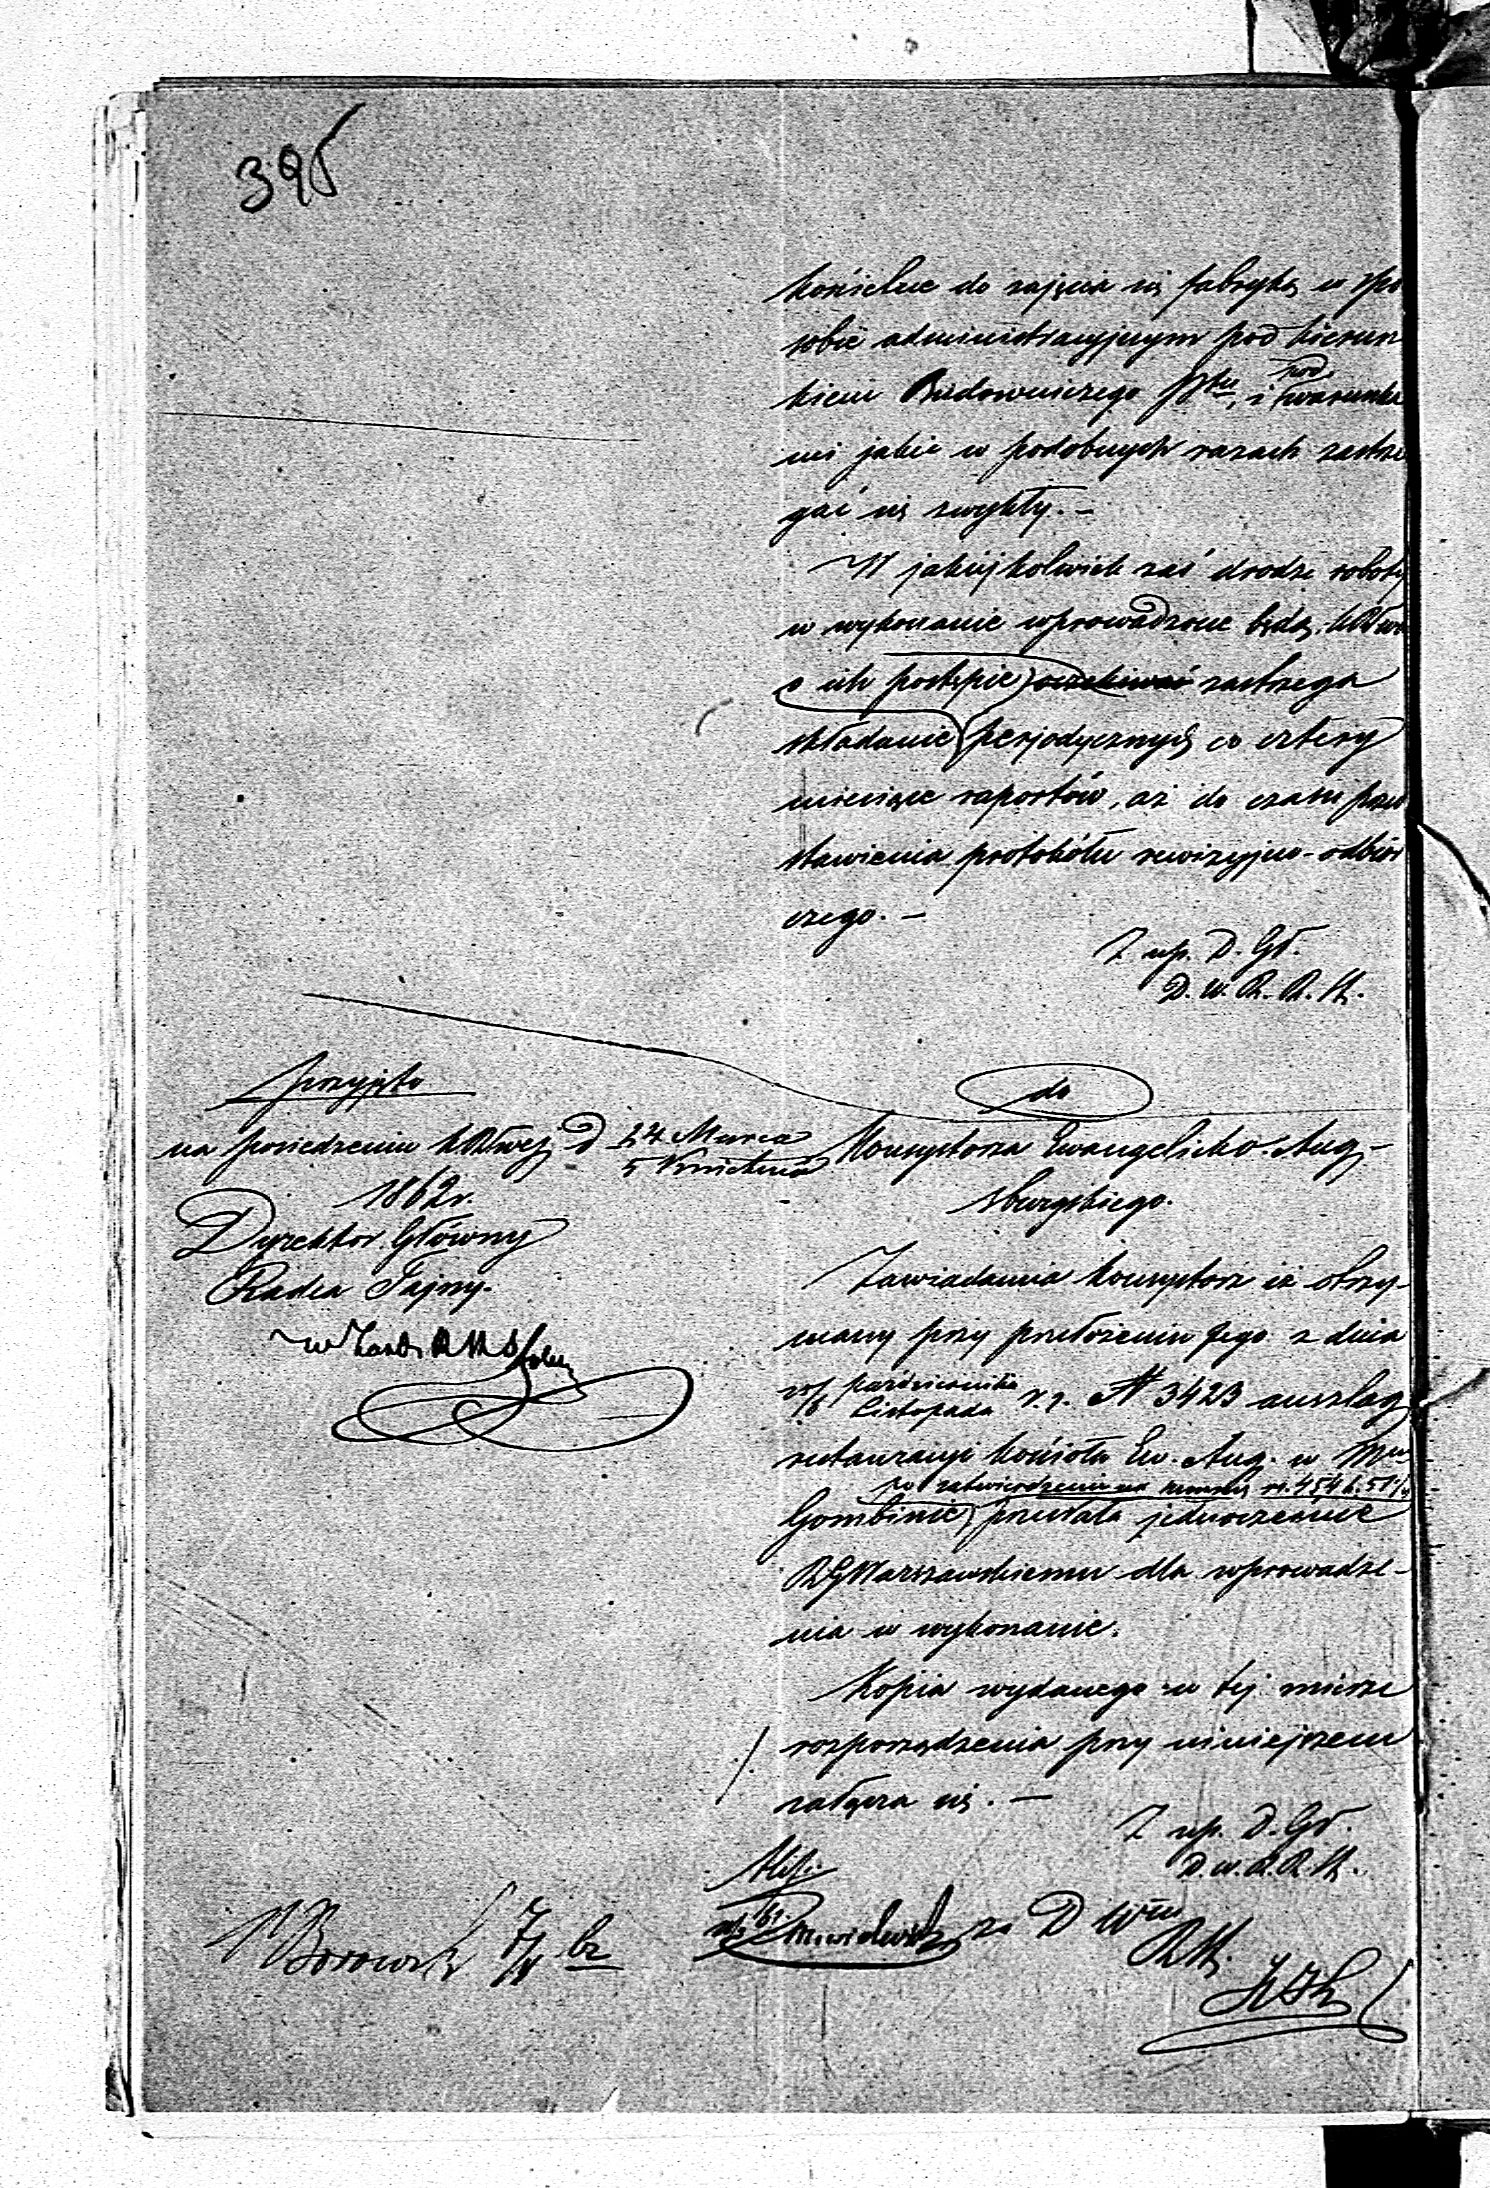 395
kościelne do zajęcia się fabryką w spo
sobie administracyjnym pod kierun
kiem Budowniczego Ptu, i pod warunka
mi jakie w podobnych razach zastrze
gać się zwykły. –
W jakiejkolwiek zaś drodze roboty
w wykonanie wprowadzone będą, KRządowa
o ich postępie oczekiwać zastrzega
składanie perjodycznych co cztery
miesiące raportów, aż do czasu przed
stawienia protokółu rewizyjno-odbior
czego. –
Z up. D. Gł.
D. W. R. R. K.
przyjęto
na posiedzeniu KRząwej d 24 Marca
5 Kwietnia
1862 r.
Dyrektor Główny
Radca Tajny.
do
Konsystorza Ewangelicko-Aug-
sburgskiego.
Zawiadamia Konsystorz iż otrzy-
many przy przełożeniu Jego z dnia
Października
Listopada r. z. N 3423 anszlag
restauracyi kościoła Ew. Aug. w Mcie
po zatwierdzeniu na summę rs. 4546.51½
Gombinie, przesłała jednocześnie
RGWarszawskiemu dla wprowadze-
nia w wykonanie.
Kopia wydanego w tej mierze
rozporządzenia przy niniejszem
załącza się. –
Z up. D. Gł.
D. W. R. R. K.
za D Włu
RK.